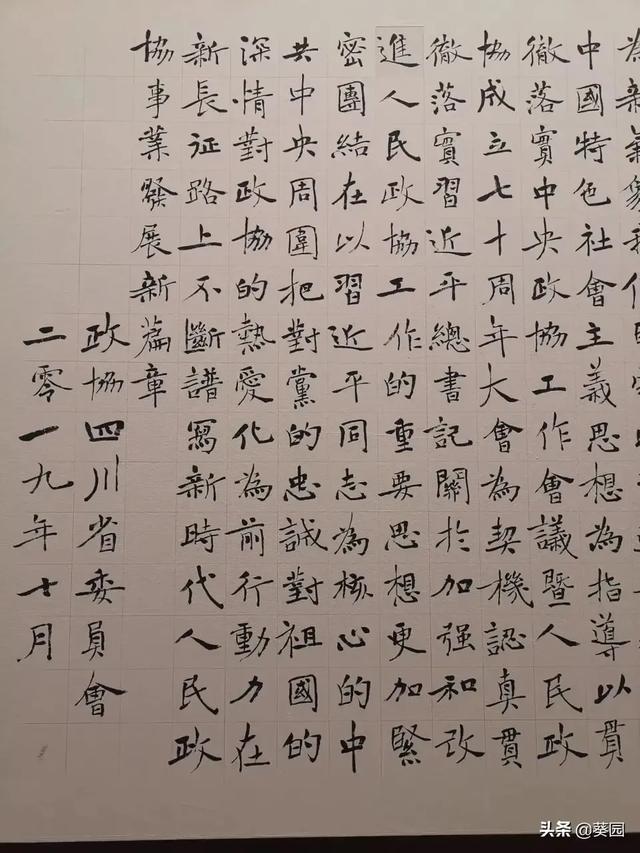 為新
中國特色社會主義思想為指導以貫
徹落實中央政協工作會議暨人民政
協成立七十周年大會為契機認真貫
徹落實習近平總書記關於加强和改
進人民政協工作的重要思想更加緊
密團結在以習近平同志為核心的中
共中央周圍把對黨的忠誠對祖國的
深情對政協的熱愛化為前行動力在
新長征路上不斷譜寫新時代人民政
協事業發展新篇章
政協四川省委員會
二零一九年十月
头条 @葵园